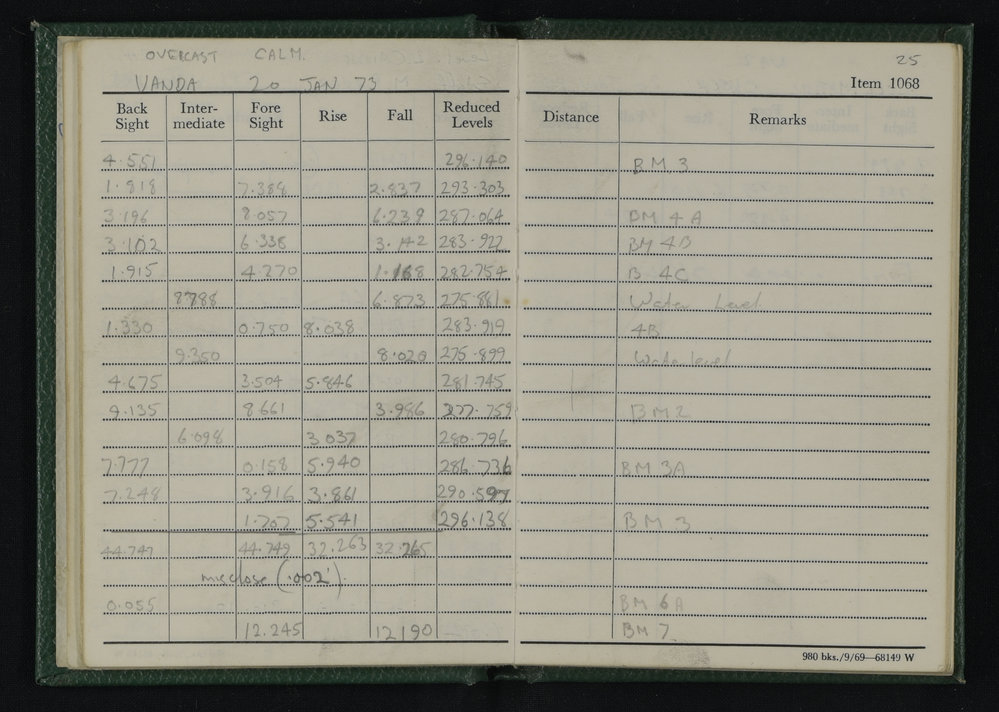 OVERCAST CALM.
VANDA 20 JAN 73
25
Item 1068
Back Sight Inter-mediate Fore Sight Rise Fall Reduced Levels Distance Remarks
4.551 296.140 BM 3
1.818 7.388 2.837 293.303
3.196 8.057 6.239 287.064 BM 4A
3.102 6.338 3.142 283.922 BM 4B
1.915 4.270 1.168 282.754 B 4C
8788 6.873 275.881 Water Level
1.330 0.750 8.038 283.919 4B
9.350 8.020 275.899 Water level
4.675 3.504 5.846 281.745
9.135 8.661 3.986 277.759 BM2
6.098 3.037 280.796
7.777 0.158 5.940 286.736 BM 3A
7.248 3.916 3.861 290.597
1.707 5.541 296.138 BM 3
44.747 44.749 32.263 32.265
misclose (.002').
0.055 BM 6A
12.245 12190 BM 7
980 bks./9/69—68149 W